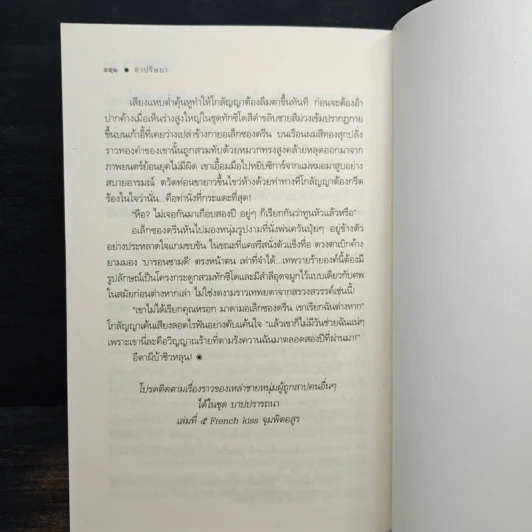 ๑๕๒ ● สาปริษยา
เสียงแหบต่ำคุ้นหูทำให้โกลัญญาต้องลืมตาขึ้นทันที ก่อนจะต้องอ้า
ปากค้างเมื่อเห็นร่างสูงใหญ่ในชุดทักซิโดสีดำสลับชายสีม่วงเข้มปรากฏกาย
ขึ้นบนเก้าอี้ที่เคยว่างเปล่าข้างกายอเล็กซอดรีน บนเรือนผมสีทองสุกปลั่ง
ราวทองคำของเขานั้นถูกสวมทับด้วยหมวกทรงสูงคล้ายหลุดออกมาจาก
ภาพยนตร์ย้อนยุคไม่มีผิด เขาเอื้อมมือไปหยิบซิการ์จากแม่หมอมาสูบอย่าง
สบายอารมณ์ ตวัดท่อนขายาวขึ้นไขว่ห้างด้วยท่าทางที่โกลัญญาต้องกรีด
ร้องในใจว่านั่น...คือท่านั่งที่กระแดะที่สุด!
“หือ? ไม่เจอกันมาเกือบสองปี อยู่ๆ ก็เรียกกันว่าทูนหัวแล้วหรือ”
อเล็กซอดรีนหันไปมองหนุ่มรูปงามที่นั่งพ่นควันปุ๋ยๆ อยู่ข้างตัว
อย่างประหลาดใจแกมขบขัน ในขณะที่แคลรีสนั่งตัวแข็งทื่อ ดวงตาเบิกค้าง
ยามมอง “บารอนซามดี” ตรงหน้าตน เท่าที่จำได้...เทพวายร้ายองค์นี้ต้องมี
รูปลักษณ์เป็นโครงกระดูกสวมทักซิโดและมีสำลีอุดจมูกไว้แบบเดียวกับศพ
ในสมัยก่อนต่างหากเล่า ไม่ใช่งดงามราวเทพยดาจากสรวงสวรรค์เช่นนี้!
“เขาไม่ได้เรียกคุณหรอก มาดามอเล็กซอดรีน เขาเรียกฉันต่างหาก”
โกลัญญาเค้นเสียงลอดไรฟันอย่างคับแค้นใจ “แล้วเขาก็ไม่มีวันช่วยฉันแน่ๆ
เพราะเขานี่ละคือวิญญาณร้ายที่ตามรังควานฉันมาตลอดสองปีที่ผ่านมา!”
อีตาผีบ้าชิวหลุน! ●
โปรดติดตามเรื่องราวของเหล่าชายหนุ่มผู้ถูกสาปคนอื่นๆ
ได้ในชุด บาปปรารถนา
เล่มที่ ๕ French kiss จุมพิตอสูร